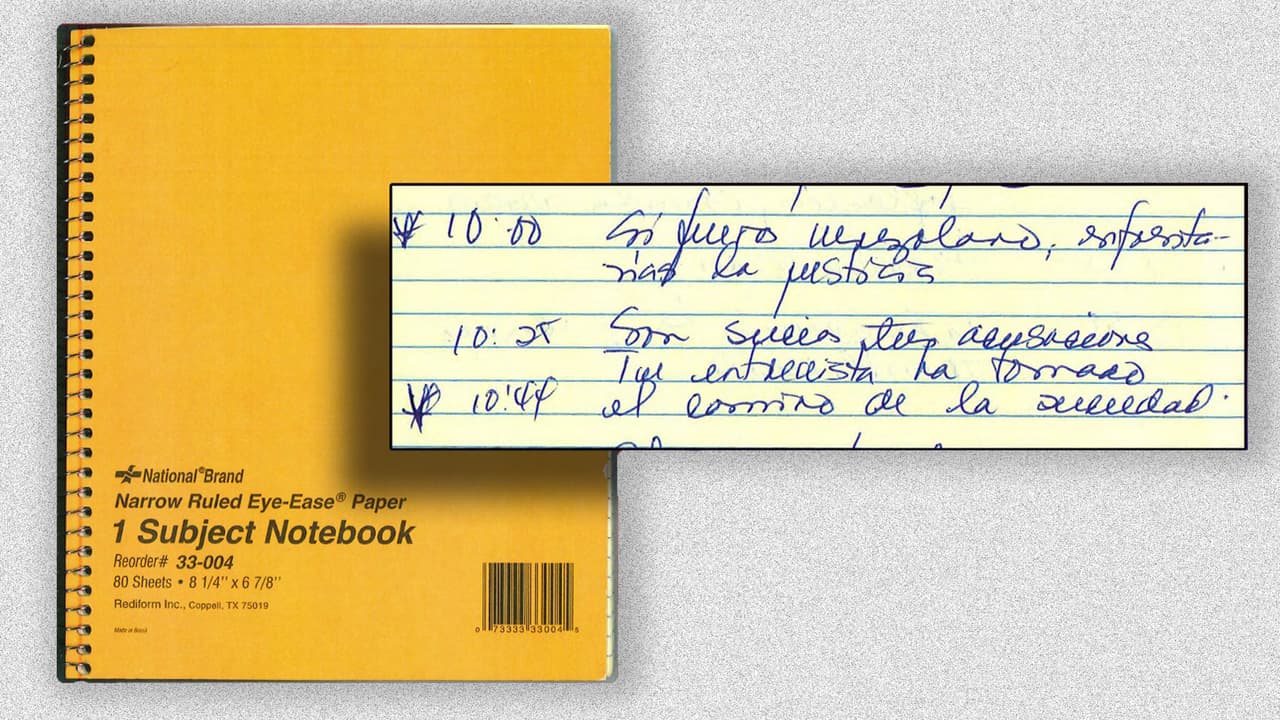 National®Brand
Narrow Ruled Eye-Ease® Paper
1 Subject Notebook
Reorder# 33-004
80 Sheets • 8 1/4" x 6 7/8"
Rediform Inc., Coppell, TX 75019
Made in Brazil
0 73333 33004 5
10:00 Si fueras venezolano, enfrenta-
rías la justicia
10:25 Son sucias tus acusaciones
Tu entrevista ha tomado
10:44 el camino de la suciedad.